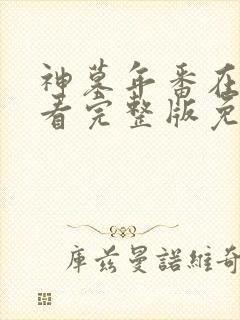 神墓年番在
看完整版免
库兹曼諾維奇